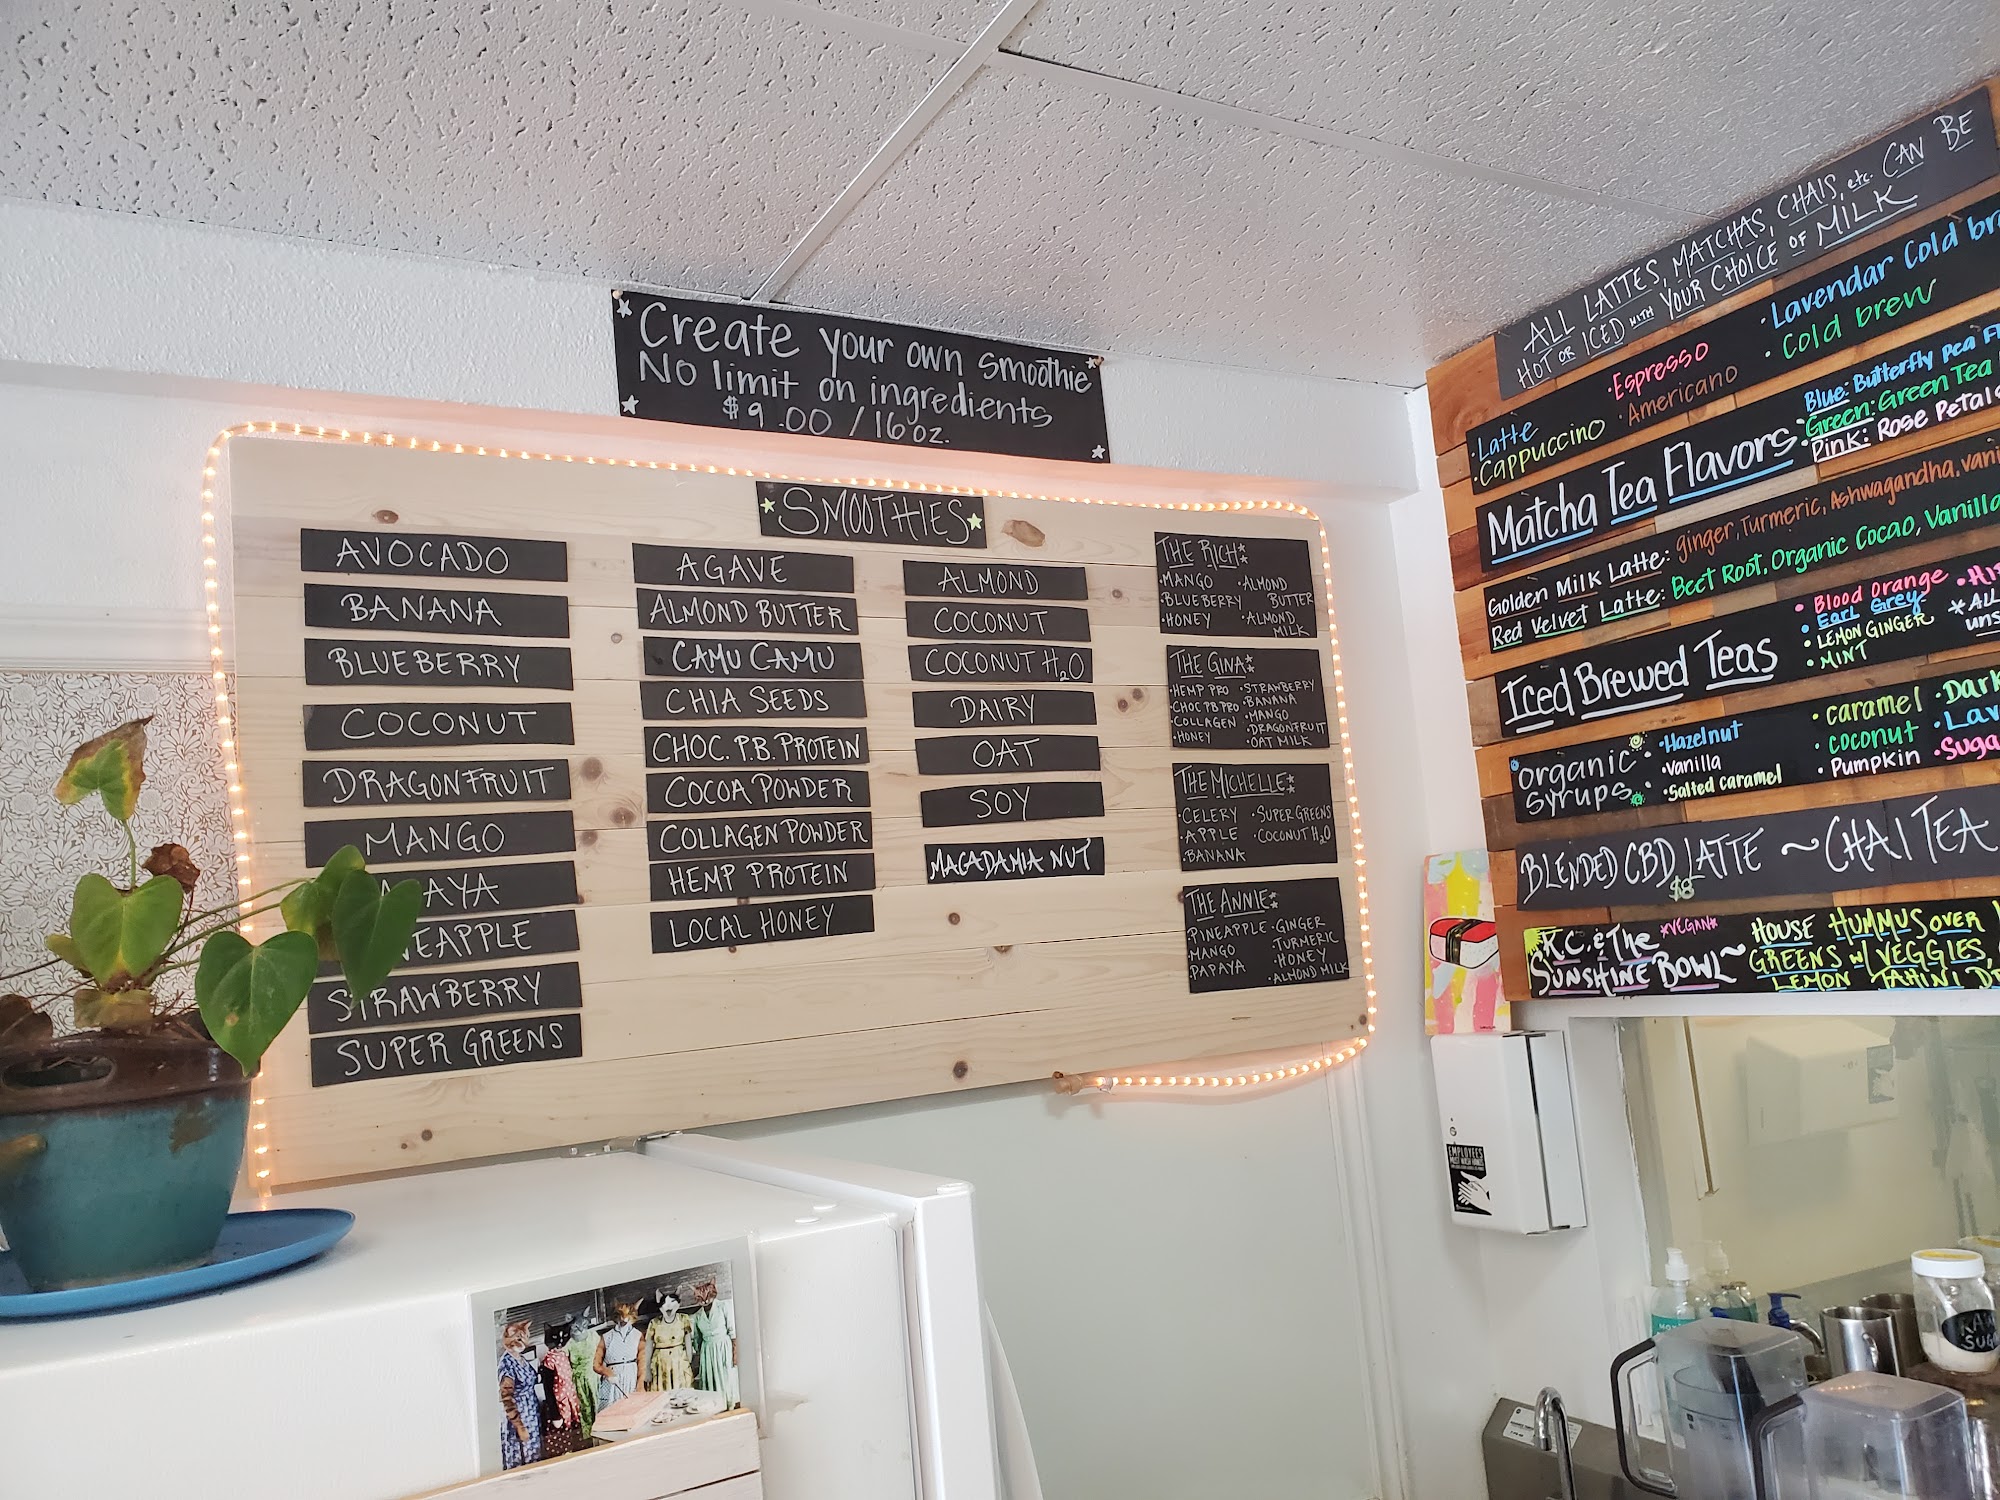 Create your own smoothie
No limit on ingredients
$9.00 / 16 oz.
SMOOTHIES
AVOCADO
BANANA
BLUEBERRY
COCONUT
DRAGONFRUIT
MANGO
STRAWBERRY
SUPER GREENS
AGAVE
ALMOND BUTTER
CAMU CAMU
CHIA SEEDS
CHOC. P.B. PROTEIN
COCOA POWDER
COLLAGEN POWDER
HEMP PROTEIN
LOCAL HONEY
ALMOND
COCONUT
COCONUT H2O
DAIRY
OAT
SOY
MACADAMIA NUT
THE RICH:
•MANGO •ALMOND
•BLUEBERRY BUTTER
•HONEY •ALMOND
MILK
THE GINA:
•HEMP PRO •STRAWBERRY
•CHOC PB PRO •BANANA
•COLLAGEN •MANGO
•HONEY •DRAGONFRUIT
•OAT MILK
THE MICHELLE:
•CELERY •SUPER GREENS
•APPLE •COCONUT H2O
•BANANA
THE ANNIE:
•PINEAPPLE •GINGER
•MANGO TURMERIC
PAPAYA •HONEY
•ALMOND MILK
ALL LATTES, MATCHAS, CHAIS, etc. CAN BE
HOT OR ICED WITH YOUR CHOICE OF MILK
•Latte •Espresso •Lavendar Cold
•Cappuccino •Americano •Cold brew
Matcha Tea Flavors
Blue: Butterfly Pea
Green: Green Tea
Pink: Rose Petals
Golden Milk Latte: ginger, Turmeric, Ashwagandha,
Red Velvet Latte: Beet Root, Organic Cocao, Vanilla
Iced Brewed Teas
•Blood Orange
•Earl Grey
•LEMON GINGER
•MINT
*ALL
organic syrups
•Hazelnut •caramel
•Vanilla •coconut
•Salted caramel •Pumpkin
BLENDED CBD LATTE ~ CHAI TEA
$8
K.C. & THE *VEGAN* HOUSE HUMMUS OVER
SUNSHINE BOWL~ GREENS w/ VEGGIES,
LEMON TAHINI
EMPLOYEES
MUST WASH HANDS
RAW